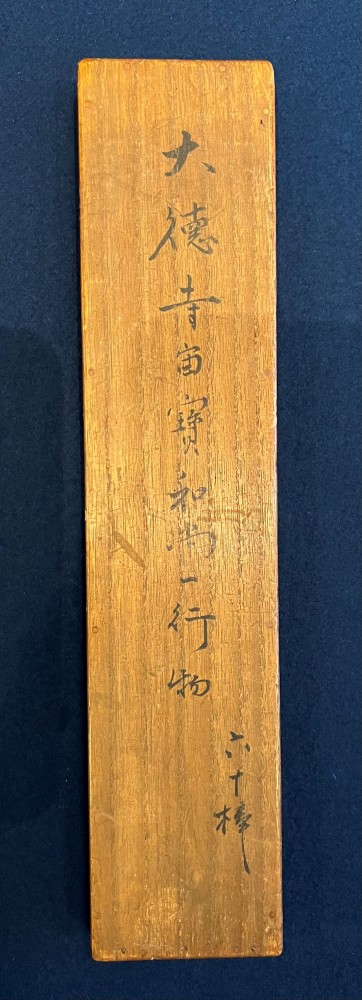 大徳寺宙寳和尚一行物
六十棒